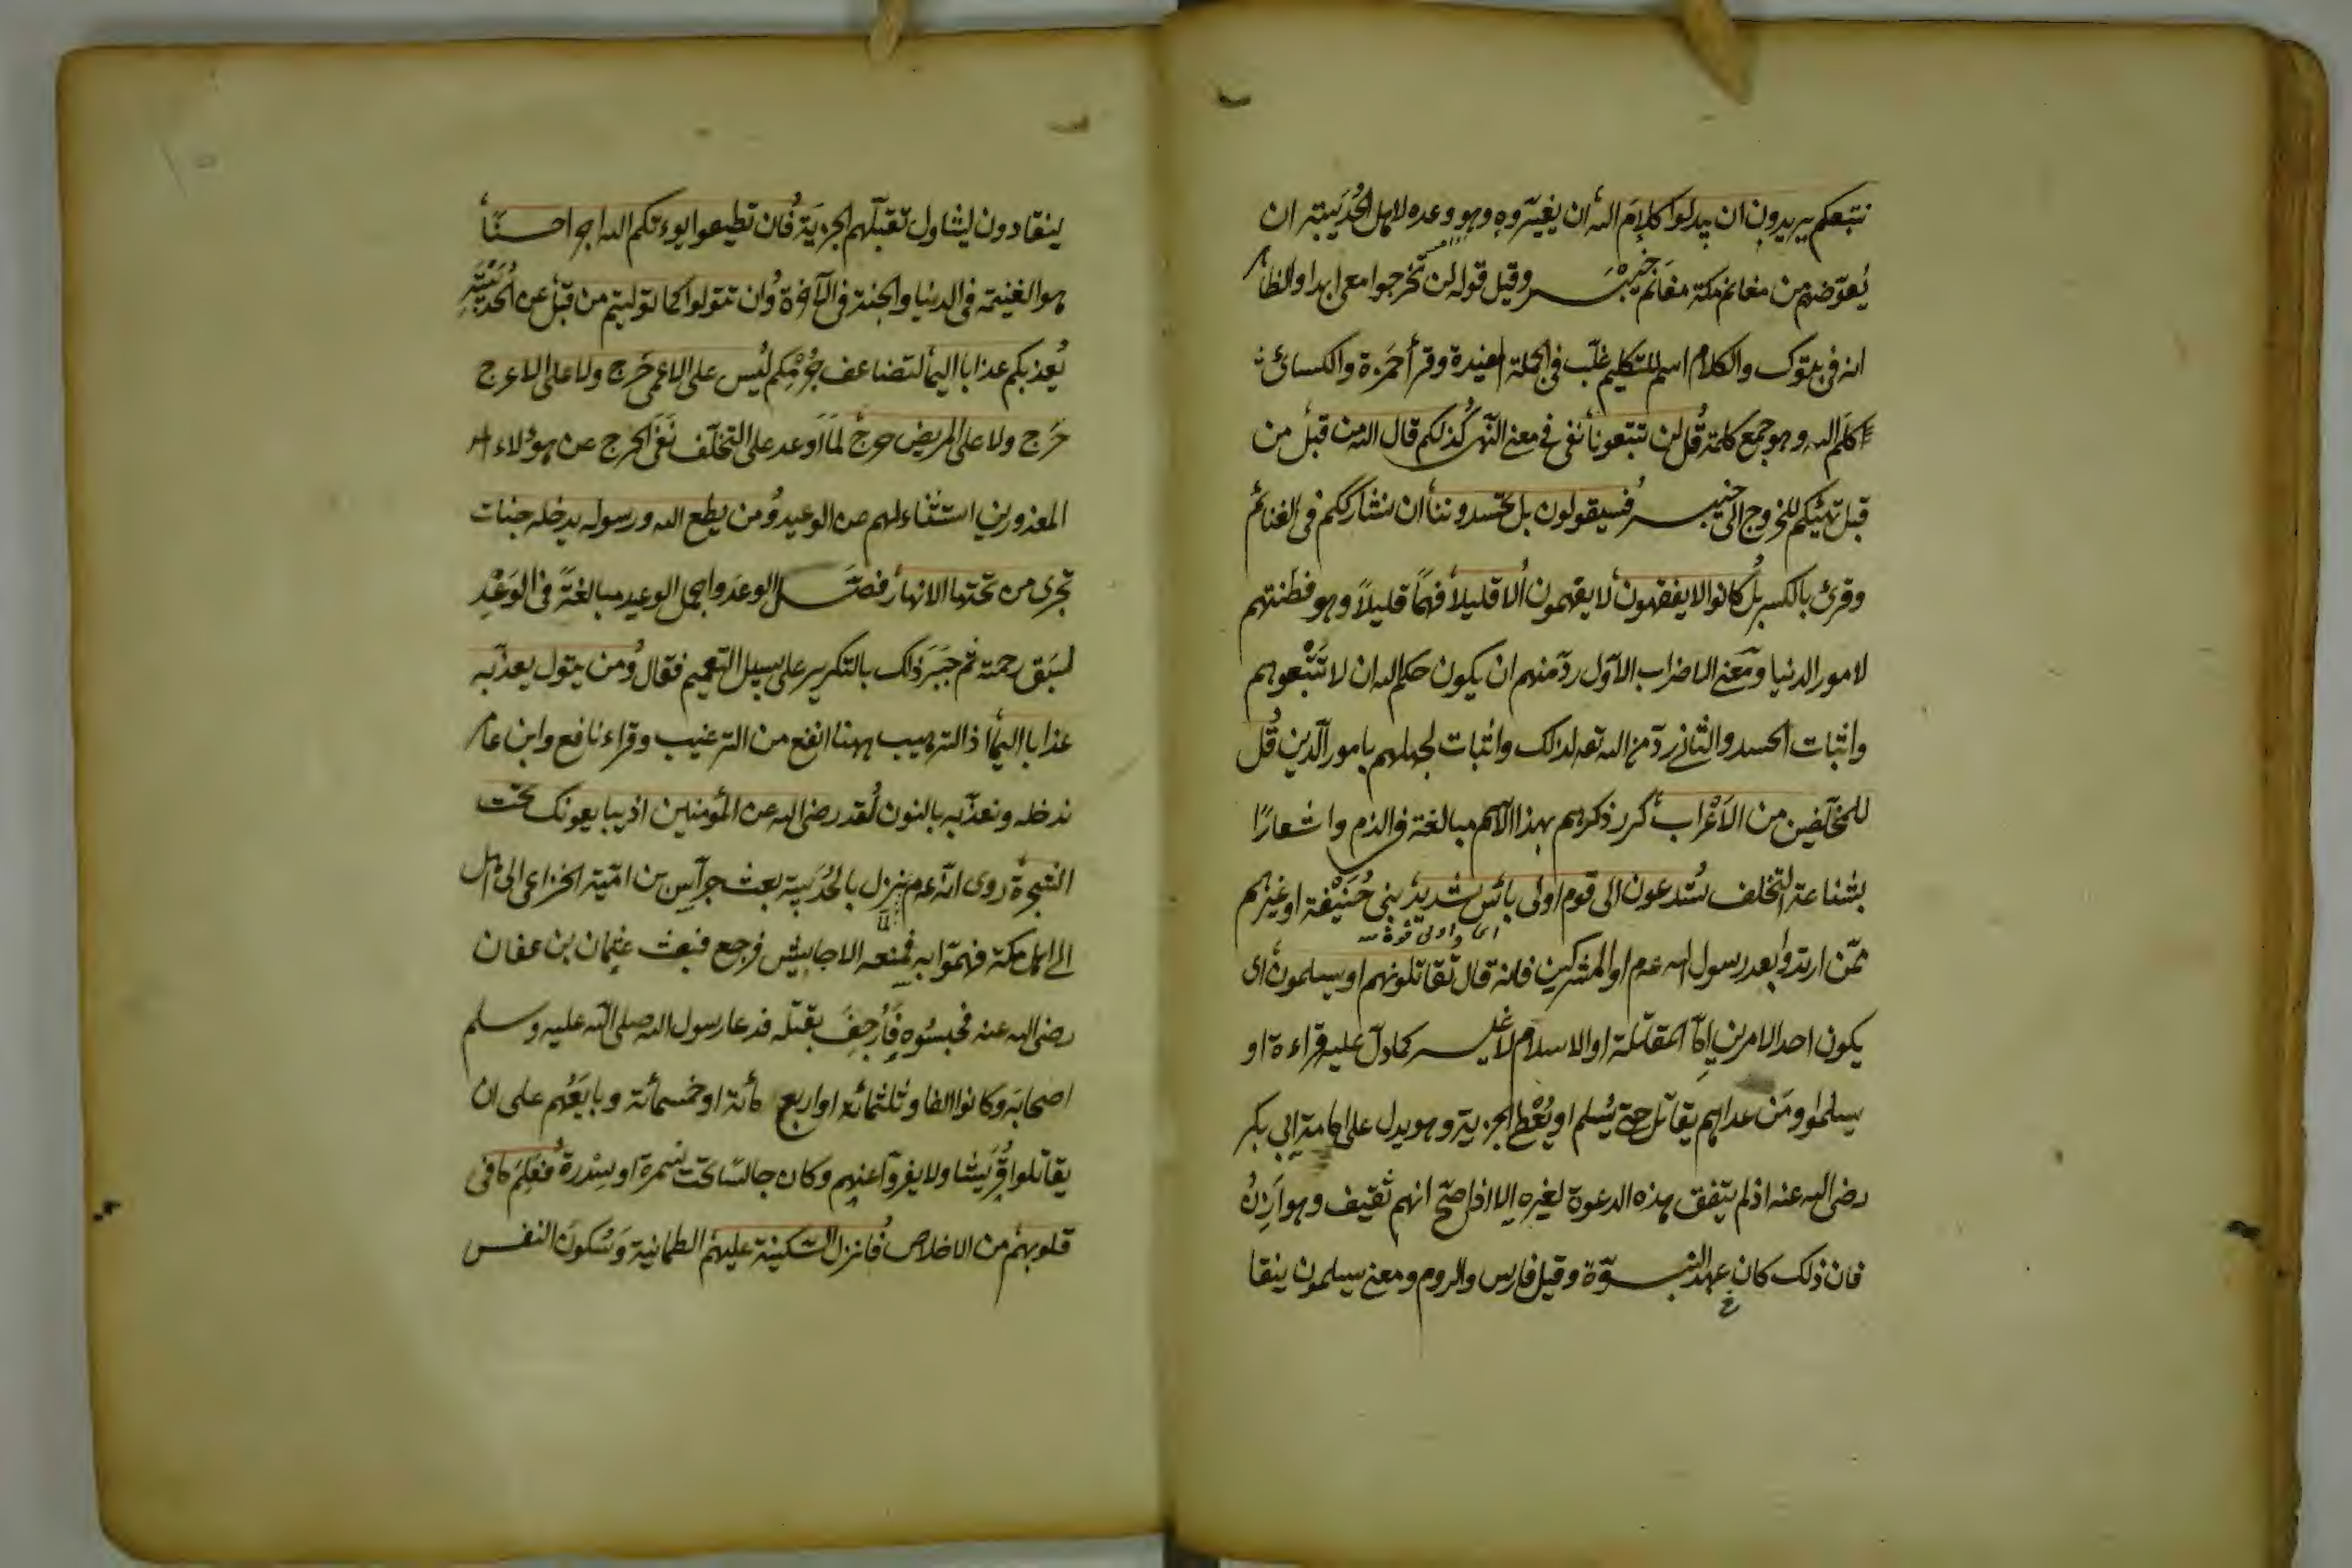 نتبعكم يريدون ان يبدلوا كلام الله ان يغيروه وهو وعده لاهل الحديبية ان
يعوضهم من مغانم مكة مغانم خيبر وقيل قوله لن تخرجوا معى ابدا والظاهر
انه فى تبوك والكلام اسم للتكليم غلب فى الجملة المفيدة وقرأ حمزة والكسائى
كلم الله وهو جمع كلمة قل لن تتبعونا نفى فى معنى النهى كذلكم قال الله من قبل من
قبل تهيئكم للخروج الى خيبر فسيقولون بل تحسدوننا ان نشارككم فى الغنائم
وقرئ بالكسر بل كانوا لا يفقهون لا يفهمون الا قليلا فهما قليلا وهو فطنتهم
لامور الدنيا ومعنى الاضراب الاول رد منهم ان يكون حكم الله ان لا تتبعوهم
واثبات الحسد والثانى رد من الله تعه لذلك واثبات لجهلهم بامور الدين قل
للمخلفين من الاعراب كرر ذكرهم بهذا الاسم مبالغة فى الذم واشعارا
بشناعة التخلف ستدعون الى قوم اولى بأس شديد بنى حنيفة او غيرهم
ممن ارتدوا بعد رسول الله عم او المشركين فانه قال تقاتلونهم او يسلمون اى
يكون احد الامرين اما المقاتلة او الاسلام لا غير كما دل عليه قراءة او
يسلموا ومن عداهم يقاتل حتى يسلم او يعطى الجزية وهو يدل على امامة ابى بكر
رضى الله عنه اذ لم يتفق هذه الدعوة لغيره الا اذا صح انهم ثقيف وهوازن
فان ذلك كان عهد النبوة وقيل فارس والروم ومعنى يسلمون ينقا
ينقادون ليتناول تقبلهم الجزية فان تطيعوا يوءتكم الله اجرا حسنا
هو الغنيمة فى الدنيا والجنة فى الآخرة وان تتولوا كما توليتم من قبل عن الحديبية
يعذبكم عذابا اليما لتضاعف جرمكم ليس على الاعمى حرج ولا على الاعرج
حرج ولا على المريض حرج لما اوعد على التخلف نفى الحرج عن هؤلاء
المعذورين استثناء لهم عن الوعيد ومن يطع الله ورسوله يدخله جنات
تجرى من تحتها الانهار فصل الوعد واجمل الوعيد مبالغة فى الوعد
لسبق رحمته ثم جبر ذلك بالتكرير على سبيل التعميم فقال ومن يتول يعذبه
عذابا اليما اذ الترهيب ههنا انفع من الترغيب وقراء نافع وابن عامر
ندخله ونعذبه بالنون لقد رضى الله عن المؤمنين اذ يبايعونك تحت
الشجرة روى انه عم نزل بالحديبية بعث جراس بن امية الخزاعى الى اهل
الى اهل مكة فهموا به فمنعه الاحابيش فرجع فبعث عثمان بن عفان
رضى الله عنه فحبسوه فأرجف بقتله فدعا رسول الله صلى الله عليه وسلم
اصحابه وكانوا الفا وثلثمائة او اربع مائة او خمسمائة وبايعهم على ان
يقاتلوا قريشا ولا يفروا عنهم وكان جالسا تحت سمرة او سدرة فعلم ما فى
قلوبهم من الاخلاص فانزل السكينة عليهم الطمانية وسكون النفس